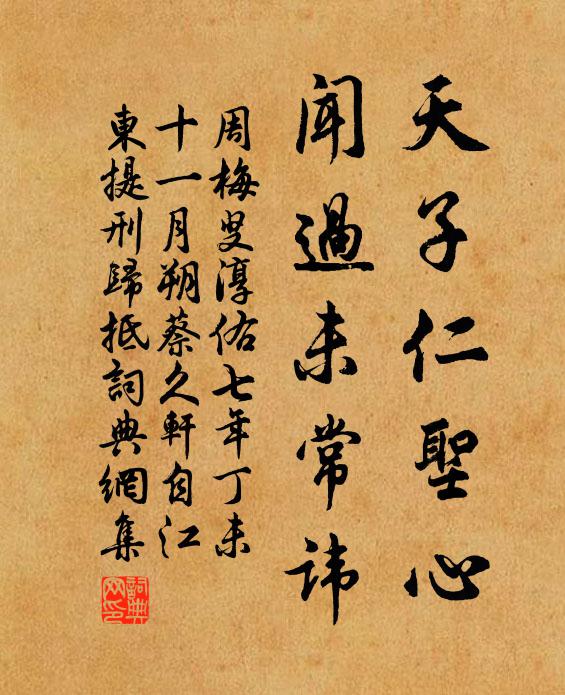 天子仁聖心
聞過未常諱
周梅叟淳佑七年丁未
十一月朔蔡久軒自江
東提刑歸抵詞典網集
詞典网印